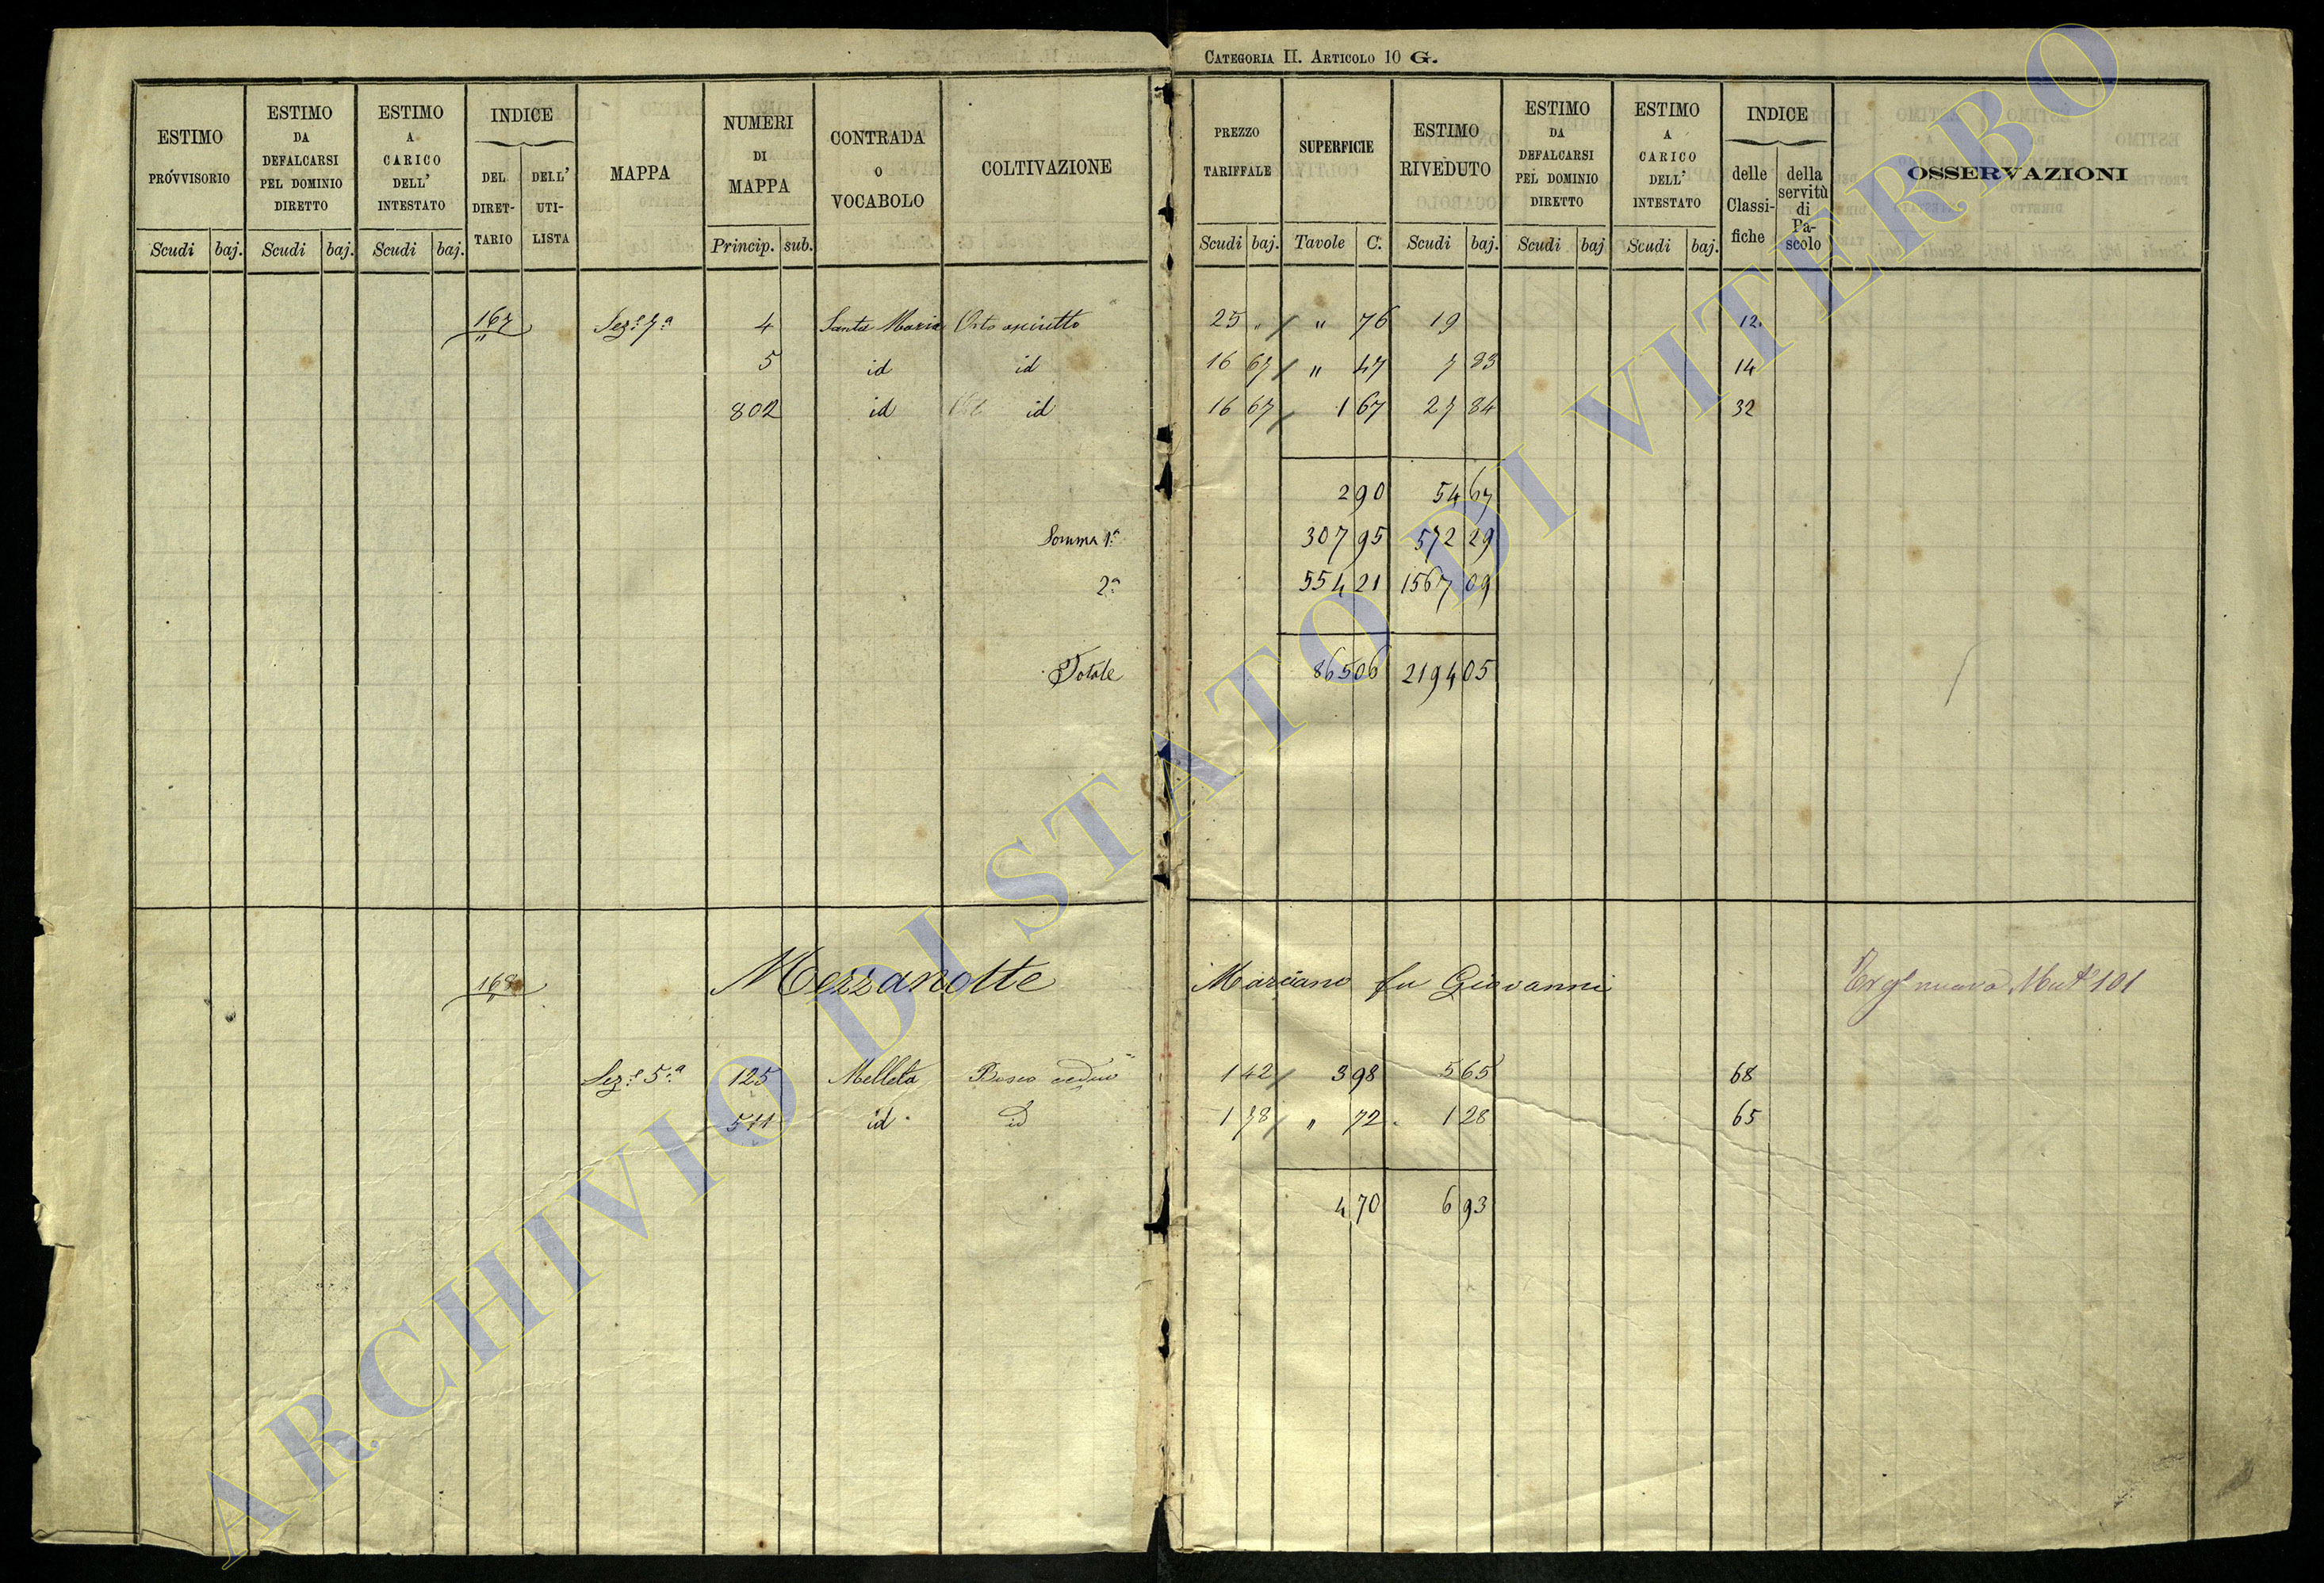 CATEGORIA II. ARTICOLO 10 G.
ESTIMO PROVVISORIO
ESTIMO DA DEFALCARSI PEL DOMINIO DIRETTO
ESTIMO A CARICO DELL' INTESTATO
INDICE
DEL DIRETTARIO
DELL' UTILISTA
MAPPA
NUMERI DI MAPPA
CONTRADA O VOCABOLO
COLTIVAZIONE
PREZZO TARIFFALE
SUPERFICIE
ESTIMO RIVEDUTO
ESTIMO DA DEFALCARSI PEL DOMINIO DIRETTO
ESTIMO A CARICO DELL' INTESTATO
INDICE
delle Classifiche
della servitù di Pascolo
OSSERVAZIONI
Scudi baj. Scudi baj. Scudi baj. Princip. sub. Scudi baj. Tavole C. Scudi baj. Scudi baj Scudi baj.
167 Sez.e 7.a 4 Santa Maria Orto asciutto 25 " " 76 19 12
5 id id 16 67 " 47 7 83 14
802 id id 16 67 1 67 27 84 32
2 90 54 67
Somma 1.a 307 95 572 29
2.a 554 21 1567 09
Totale 865 06 2194 05
168 Mezzanotte Marciano fu Giovanni nuova 101
Sez.e 5.a 125 Melleta Bosco ceduo 1 42 3 98 5 65 68
511 id id 1 78 " 72 1 28 65
4 70 6 93
ARCHIVIO DI STATO DI VITERBO